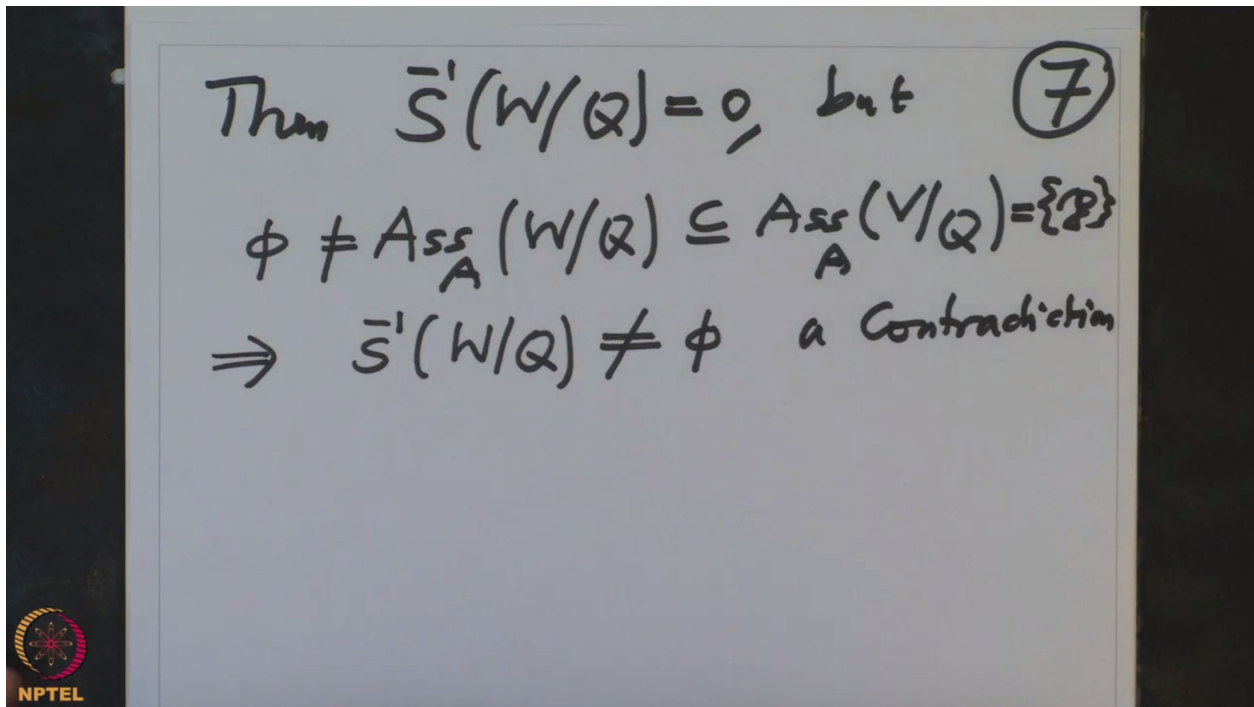 Then S⁻¹(W/Q) = 0, but ⑦
ϕ ≠ Ass_A (W/Q) ⊆ Ass_A (V/Q) = {𝔭}
⇒ S⁻¹(W/Q) ≠ ϕ a Contradiction
NPTEL